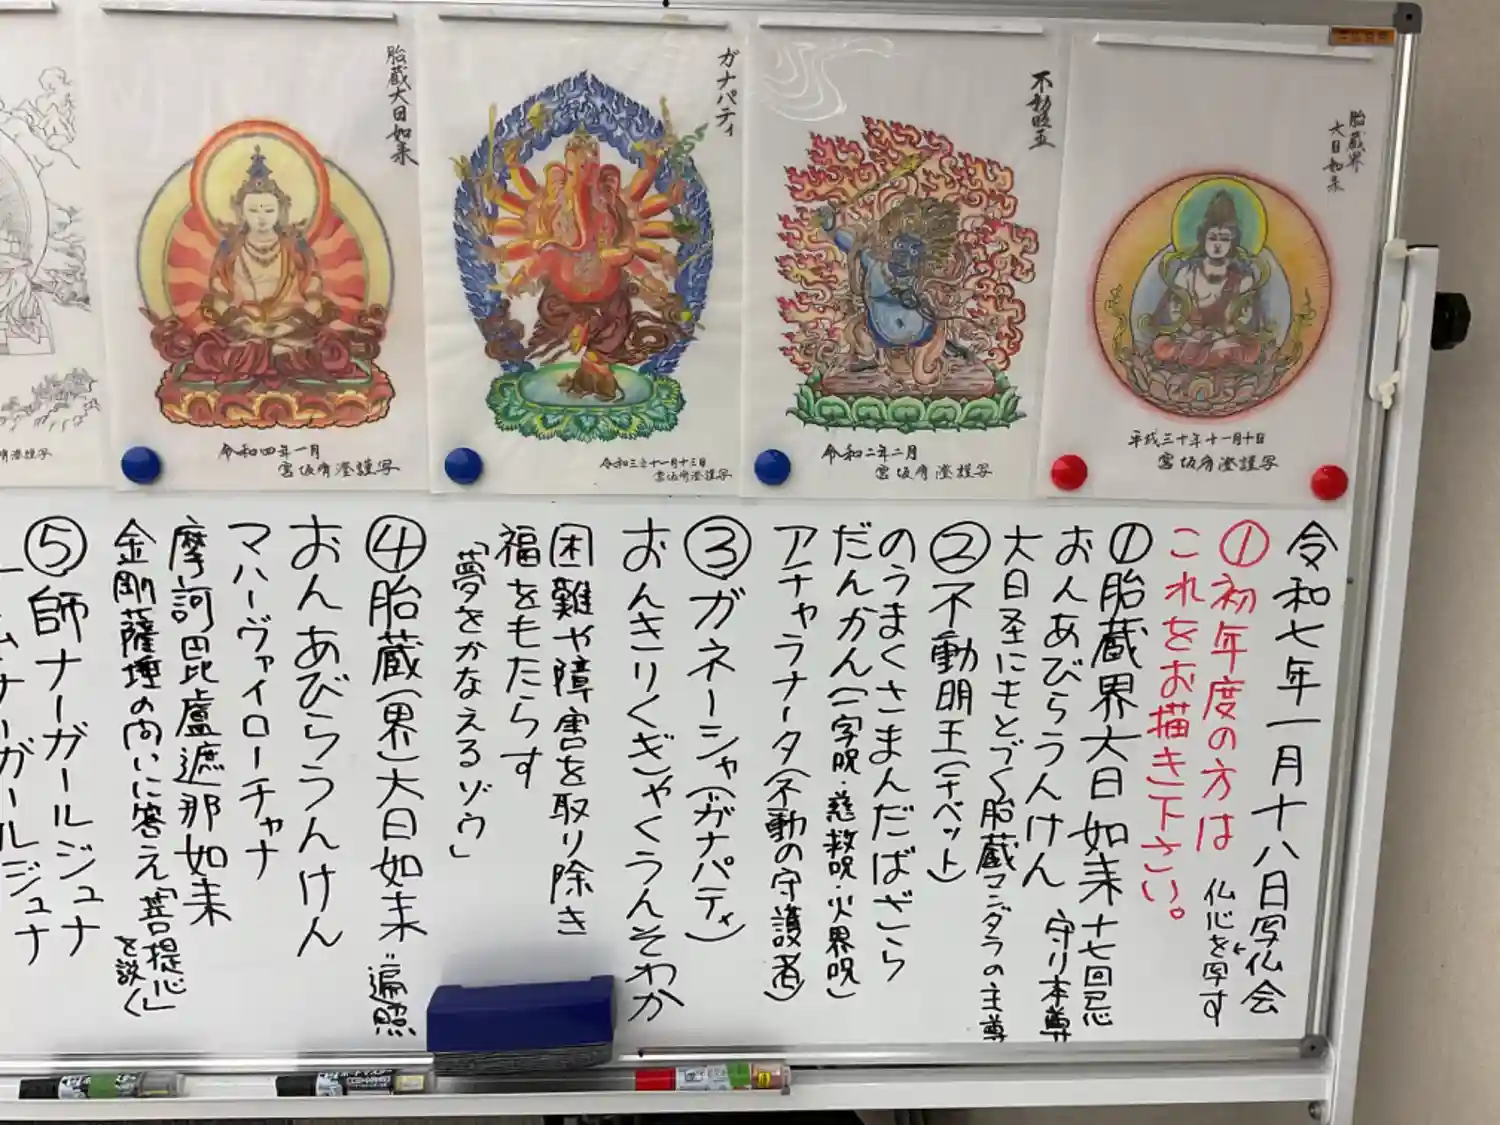 胎蔵界
大日如来
平成三十年十一月十日
宮坂宥澄謹写
不動明王
令和二年二月
宮坂宥澄謹写
ガナパティ
令和三年十一月十三日
宮坂宥澄謹写
胎蔵大日如来
令和四年一月
宮坂宥澄謹写
謹写
令和七年一月十八日写仏会
①初年度の方は 仏心を写す
これをお描き下さい。
①胎蔵界大日如来 十七回忌
おんあびらうんけん 守り本尊
大日圣にもとづく胎蔵マンダラの主尊
②不動明王(チベット)
のうまくさまんだばざら
だんかん(一字呪・慈救呪・火界呪)
アチャラナータ(不動の守護者)
③ガネーシャ(ガナパティ)
おんきりくぎゃくうんそわか
困難や障害を取り除き
福をもたらす
「夢をかなえるゾウ」
④胎蔵(界)大日如来 遍照
おんあびらうんけん
マハーヴァイローチャナ
摩訶毘盧遮那如来
金剛薩埵の問いに答え「菩提心」を説く
⑤師ナーガールジュナ
ナーガールジュナ